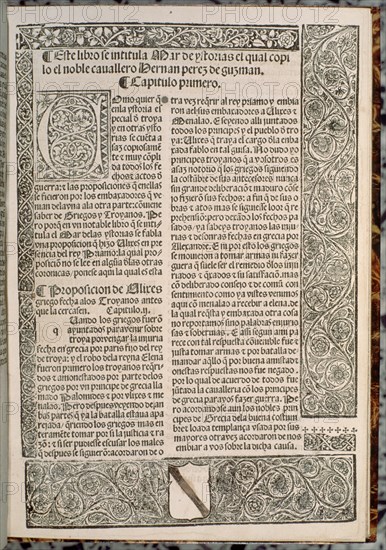 ¶ Este libro se intitula Mar de ystorias el qual copi
lo el noble cavallero Hernan perez de guzman.
¶ Capitulo primero.
Omo quier q̃
en la ystoria es
pecial d̃ troya
y en otras ystو
rias se cuẽta a
saz copiosamẽ
te y muy cõpli
da todos los fe
chos actos d̃
guerra: ⁊ las proposiciones q̃ enellas
se fizieron por los embaxadores q̃ ve
nian dela vna ala otra parte cõuiene
saber de Griegos y Troyanos. Pe
ro porq̃ en vn notable libro q̃ se intitu
la Mar delas ystorias se fabla
vna proposicion q̃ hizo Ulixes en pre
sencia del rey Priamo: la qual propo
sicion no se lee en algũa delas otras
coronicas, ponise aqui la qual es esta
¶ Proposicion de Ulixes
griego fecha alos Troyanos antes
que la cercasen. Capitulo .ij.
Uando los griegos fuerõ
ayuntados para venir sobre
troya por vengar la injuria
fecha en grecia por paris fijo del rey
de troya: y el robo dela reyna Elena
fueron primero los troyanos req̃ri-
dos ⁊ amonestados por parte delos
griegos por vn principe de grecia lla
mado Palomides ⁊ por ulixes ⁊ me
nalao. Pero despues veyendo q̃ de am
bas partes
rejada: q̃riendo los griegos mas en
teramẽte tomar por si la justicia ⁊ ra
zõ: ⁊ si ser pudiese escusar los males
q̃ despues se siguierõ: acordaron de o
tra vez reqrir al rey priamo y embia
ron a el sus embaxadores a Ulixes ⁊
Menalao. E seyendo alli juntados
todos los principes y el pueblo d̃ tro
ya: Ulixes q̃ traya el cargo d̃la emba
xada fablo en tal guisa. No dubdo yo
principes troyanos q̃ a vosotros es
asaz notorio q̃ los griegos siguiendo
la costũbre de sus antecessores nunca
sin grande deliberacion ⁊ maduro cõse
jo fizierõ sus fechos: a fin q̃ de sus o
bras ⁊ atos no se siguiese loor q̃ re
prehensiõ: pero dexãdo los fechos pa
sados, ya sabeys troyanos las inju-
rias ⁊ desonras fechas en grecia por
Alexandre. E si por esto los griegos
se mouieron a tomar armas ni fazer
guerra
consejo y de comũ con
sentimento como ya vistes venimos
aqui con menalao a recebir a elena, de
la qual reqsta y embaxada otra cosa
no reportamos sino palabras injurio
sas ⁊ soberuias. E asi segun am pa
rece con tal respuesta cõuenible fue ⁊
justa tomar armas ⁊ por batalla de-
mandar aq̃llo q̃ por buena amistad ⁊
onestas respuestas nos fue negado.
por lo qual de acuerdo de todos fue
jũtada la caualleria cõ los principes
de grecia para vos fazer guerra. Pe
ro acordandose aun los nobles prin
cipes de Grecia dela buena costum-
bre ⁊ loada templança vsada por sus
mayores otra vez acordaron de nos
embiar a vos sobre la dicha causa.